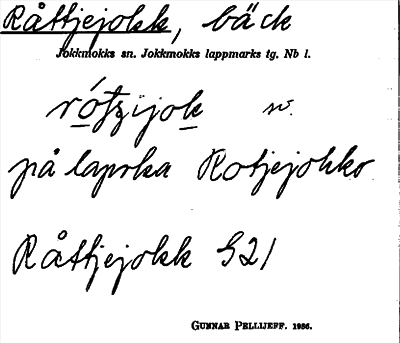 Råttjejokk, bäck
Jokkmokks sn. Jokkmokks lappmarks tg. Nb l.
rótzijok w.
på lapska Rotjejokko
Råttjejokk G21
GUNNAR PELLIJEFF. 1936.